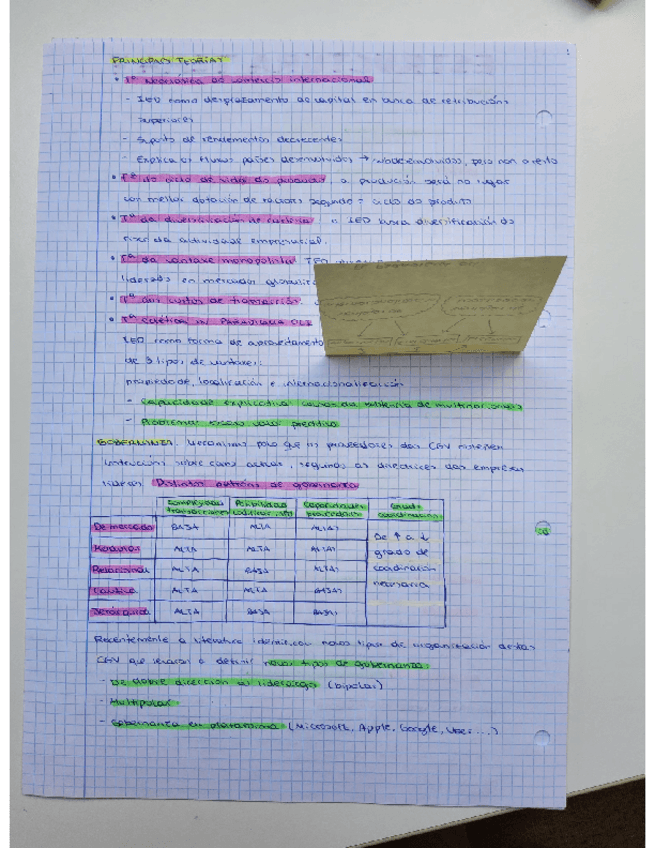 PRINCIPAIS TEORÍAS
• Tª Neoclásica do comercio internacional
- IED como desprazamento de capital en busca de retribucións
superiores
- Suposto de rendementos decrecentes
- Explica os fluxos países desenvolvidos → subdesenvolvidos, pero non o resto
• Tª do ciclo de vida do produto, a produción será no lugar
con mellor dotación de factores segundo o ciclo do produto
• Tª da diversificación de carteira, a IED busca diversificación do
risco da actividade empresarial.
• Tª da vantaxe monopolista IED
liderado en mercados
• Tª dos custos de transacción.
• Tª ecléctica ou Paradigma OLI
IED como forma de aproveitamento
de 3 tipos de vantaxes:
propiedade, localización e internacionalización
- Capacidade explicativa: causas da existencia de multinacionais
- Problemas: escaso valor preditivo
GOBERNANZA. Mecanismos polo que os proveedores das CGV manteñen
interacción sobre outros, seguindo as directrices das empresas
líderes. Distintos patróns de gobernanza
Complexidade transaccións
Posibilidade codificar
Capacidades proveedores
Grao de coordinación
De mercado BAIXA ALTA ALTAS
Modular ALTA ALTA ALTAS
Relacional ALTA BAIXA ALTAS
Cautiva ALTA ALTA BAIXAS
Xerárquica ALTA BAIXA BAIXAS
De ↑ a ↓
grado de
coordinación
necesaria
Recentemente a literatura identificou novos tipos de organización destas
CGV que levaron a definir novos tipos de gobernanza:
- De dobre dirección ou liderazgo (bipolar)
- Multipolar
- Gobernanza en plataforma (Microsoft, Apple, Google, Uber....)